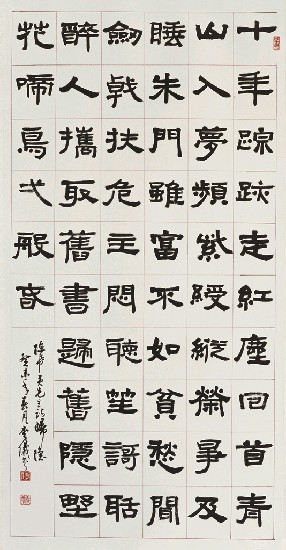 十年踪跡走紅塵回首青
山入夢頻紫綬縱榮爭及
睡朱門雖富不如貧愁聞
劒戟扶危主悶聽笙謌聒
醉人攜取舊書歸舊隱野
花啼鳥弌般春
陳希夷先生詩歸隱
癸未年春月